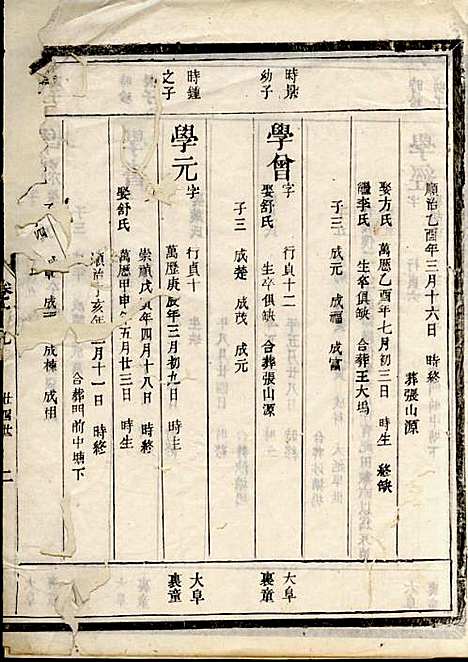 順治乙酉年三月十六日 時終
葬張山源
娶方氏 萬曆乙酉年七月初三日 時生 終缺
繼李氏 生卒俱缺 合葬王大塢
子三 成元 成福 成富
時景
幼子
學曾
字 行貞十二
娶舒氏 生卒俱缺 合葬張山源
大阜
裏童
子三 成楚 成茂 成元
時鍾
之子
學元
字 行貞十
萬曆庚辰年三月初九日 時生
大阜
裏童
崇禎戊寅年四月十八日 時終
娶舒氏 萬曆甲申年五月廿三日 時生
順治丁亥年二月十一日 時終
合葬門前中塘下
子四 成章 成 成棟 成相
廿四世 二